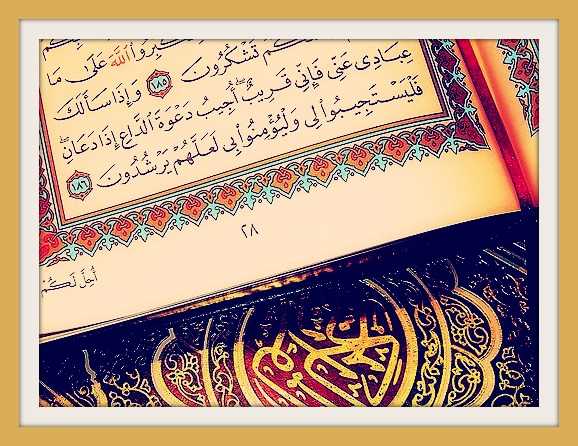 كبروا الله على ما
كم تشكرون ١٨٥ وإذا سألك
عبادى عنى فإنى قريب أجيب دعوة الداع إذا دعان
فليستجيبوا لى وليؤمنوا بى لعلهم يرشدون ١٨٦
٢٨
أحل لكم